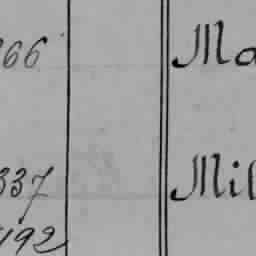 66 Ma
337 Mil
192